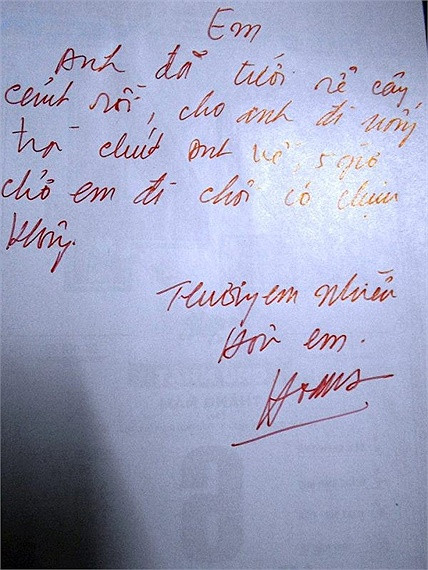 Em
Anh đã tưới rể cây
cảnh rồi, cho anh đi uống
trà chút anh về, 5 giờ
chở em đi chơi có chịu
không.
Thương em nhiều
Hôn em.